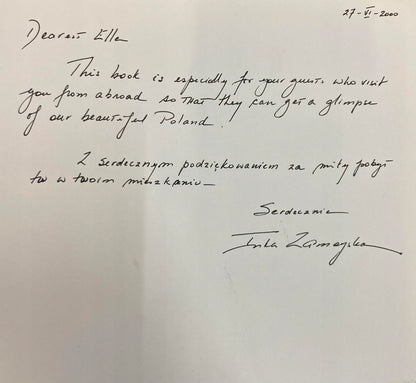 27-VI-2000
Dearest Ella
This book is especially for your guests who visit
you from abroad so that they can get a glimpse
of our beautiful Poland.
Z serdecznym podziękowaniem za miły pobyt
tu w twoim mieszkaniu—
Serdecznie
Zamoyska